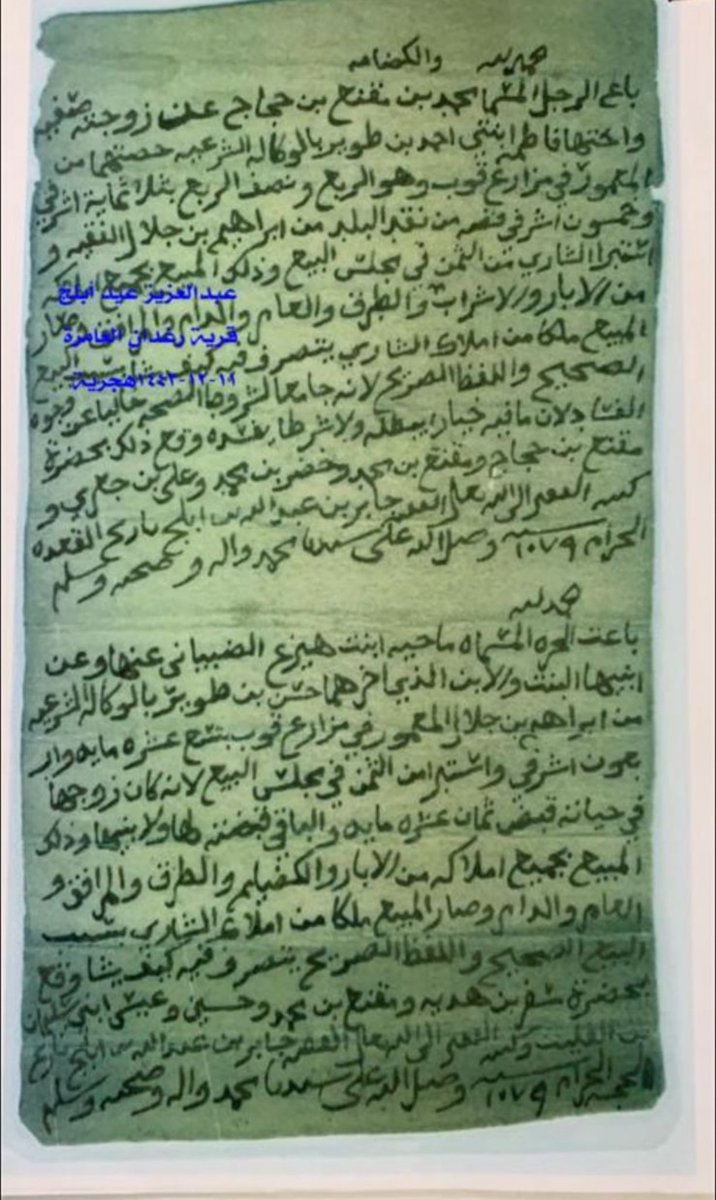 والكضامه
باع الرجل المسما محمد بن مفتح بن حجاج عن زوجته صفيه
واختها فاطمه ابنتي احمد بن طوير بالوكاله الشرعيه حصتهما من
المعمور في مزارع قوب وهو الربع ونصف الربع بثلاثماية اشرفي
وخمسون اشرفي فضه من نقد البلد من ابراهيم بن جلال الفقيه و
استبرا الشاري من الثمن في مجلس البيع وذلك المبيع بجميع
من الابار والاشراب والطرق والعام والدام وصار
المبيع ملكا من املاك الشاري يتصرف فيه كيف البيع
الصحيح واللفظ الصريح لانه جامعا لشروط الصحه خاليا عن وجوه
الفساد لان مافيه خيار يبطله ولا شرطا يفسده وقع ذلك بحضرة
مفتح بن حجاج ومفتح بن محمد وخضر بن محمد وعلي بن جعري و
كتبه الفقير الى الله تعالى الفقيه جابر بن عبدالله بن ابلج بتاريخ القعده
الحرام سنه ١٠٧٩ وصلى الله على سيدنا محمد واله وصحبه وسلم
الحمد لله
باعت الحره المسماه ماحيه ابنت هيزع الضبياني عنها وعن
ابنيها البنت والابن الذي اخرهما حسن بن طوير بالوكاله الشرعيه
من ابراهيم بن جلال المعمور في مزارع قوب بتسع عشره مايه وار
بعون اشرفي واستبرا من الثمن في مجلس البيع لانه كان زوجها
في حياته قبض ثمان عشره مايه والباقي قبضته لها ولابنيها وذلك
المبيع بجميع املاكه من الابار والكضايم والطرق والمرافق و
العام والدام وصار المبيع ملكا من املاك الشاري بسبب
البيع الصحيح واللفظ الصريح يتصرف فيه كيف يشا وقع
بحضرة سفر بن هديه ومفتح بن محمد وحسين وعيسى ابني سليمان
بن القليت وكتبه الفقير الى الله تعالى الفقيه جابر بن عبدالله بن ابلج بتاريخ
الحجه الحرام سنه ١٠٧٩ وصلى الله على سيدنا محمد واله وصحبه وسلم
عبدالعزيز عيد أبلج
قرية رغدان العامرة
١٩-١٢-١٤٤٢هجرية